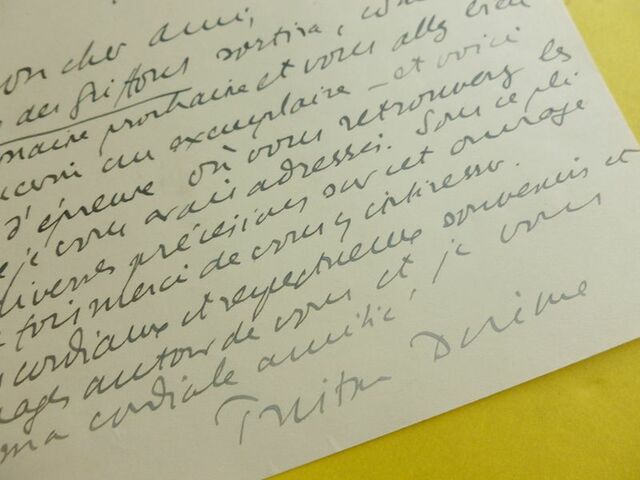 mon cher ami,
des Griffons sortira,
semaine prochaine et vous allez bien
un exemplaire – et voici
d'épreuve où vous retrouverez les
je vous avais adressés. Sous ce pli
diverses précisions sur cet ouvrage
fois merci de vous y intéresser.
cordiaux et respectueux souvenirs et
autour de vous et je vous
ma cordiale amitié,
Tristan Derème